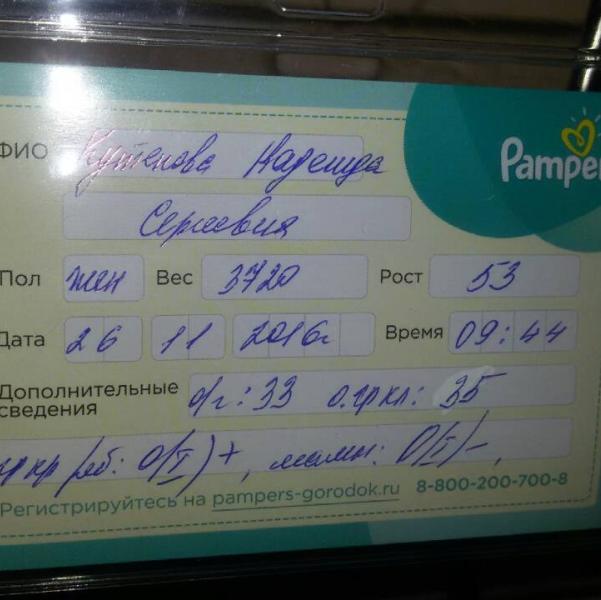 ФИО Кутепова Надежда
Pampers
Сергеевна
Пол жен Вес 3720 Рост 53
Дата 26 11 2016г Время 09:44
Дополнительные
сведения
о/г: 33 о.гр кл: 35
гр кр/реб: 0(I)+, мамы: 0(I)-,
Регистрируйтесь на pampers-gorodok.ru 8-800-200-700-8